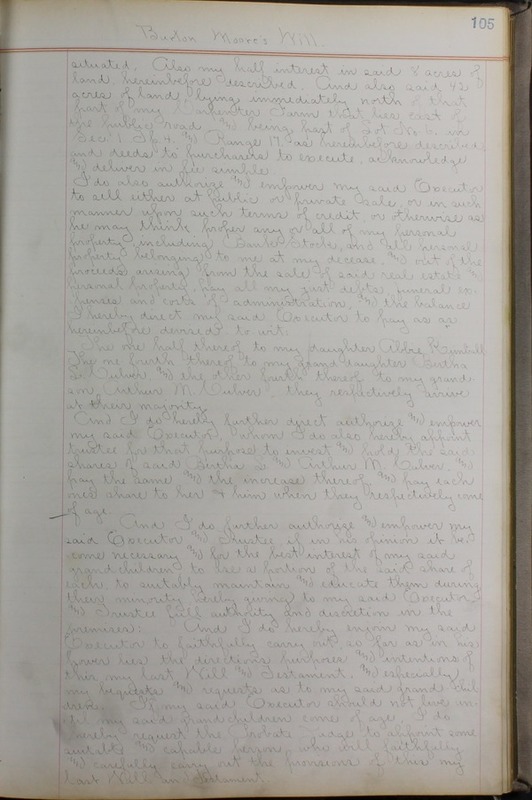 105
Burton Moore's Will.
situated. Also my half interest in said 8 acres of
land hereinbefore described. And also said 42
acres of land lying immediately north of that
part of my Carpenter Farm that lies east of
the public road and being part of Lot No. 6. in
Sec 1. Tp 4. Range 17 as hereinbefore described
and deeds to purchasers to execute, acknowledge
and deliver in fee simple.
I do also authorize and empower my said Executor
to sell either at public or private sale, or in such
manner upon such terms of credit, or otherwise as
he may think proper any or all of my personal
property including Bank Stocks, and all personal
property belonging to me at my decease, and out of the
proceeds arising from the sale of said real estate and
personal property, pay all my just debts, funeral ex-
penses and costs of administration, and the balance
I hereby direct my said Executor to pay as as
hereinbefore devised to wit:
The one half thereof to my daughter Abbie Kimball
The one fourth thereof to my grand daughter Bertha
S. Culver and the other fourth thereof to my grand-
son Arthur M. Culver, they respectively arrive
at their majority.
And I do hereby further direct authorize and empower
my said Executor, whom I do also hereby appoint
trustee for that purpose to invest and hold the said
shares of said Bertha S. and Arthur M. Culver, and
pay the same and the increase thereof and pay each
ones share to her & him when they respectively come
of age.
And I do further authorize and empower my
said Executor and Trustee, if in his opinion it be-
come necessary and for the best interest of my said
grandchildren to use a portion of the said share of
each to suitably maintain and educate them during
their minority hereby giving to my said Executor
and Trustee full authority and discretion in the
premises: And I do hereby enjoin my said
Executor to faithfully carry out so far as in his
power lies the directions purposes and intentions of
this my last Will and Testament, and especially
my bequests and requests as to my said grand chil
dren. If my said Executor should not live un-
til my said grandchildren come of age, I do
hereby request the Probate Judge to appoint some
suitable and capable person, who will faithfully
and carefully carry out the provisions of this my
last Will and Testament.